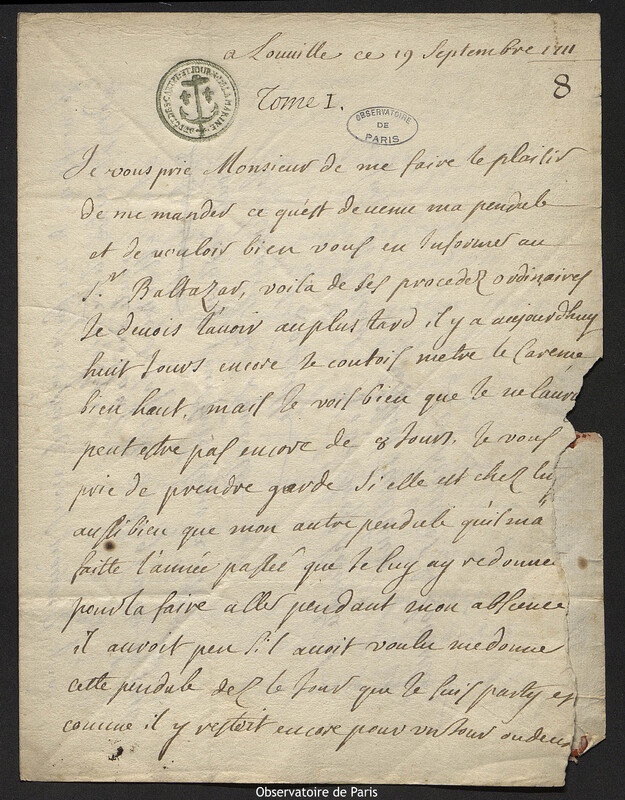 a Louville ce 19 Septembre 1711
8
Tome I.
OBSERVATOIRE
DE
PARIS
Je vous prie Monsieur de me faire le plaisir
de me mander ce qu'est devenu ma pendule
et de vouloir bien vous en Informer au
S.r Baltazar, voila de ses procedez ordinaires
Je devois l'avoir au plus tard il y a aujourdhuy
huit Jours encore Je contois metre le Careme
bien haut, mais Je vois bien que Je ne l'auray
peut estre pas encore de 8 Jours. Je vous
prie de prendre garde Si elle est chez luy
aussi bien que mon autre pendule qu'il m'a
faitte l'année passée que Je luy ay redonne
pour la faire aller pendant mon absence
il auroit peu S'il avoit voulu me donne
cette pendule dez le Jour que Je suis party et
comme il y restoit encore pour un Jour ou deux
Observatoire de Paris